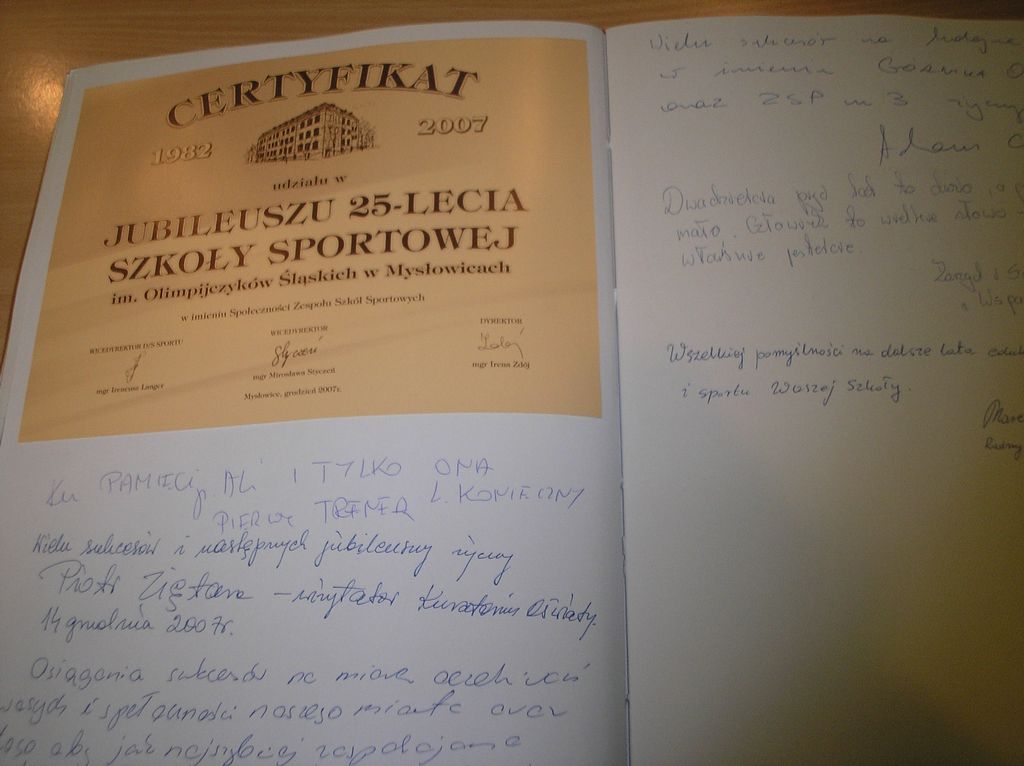 CERTYFIKAT
1982 2007
udziału w
JUBILEUSZU 25-LECIA
SZKOŁY SPORTOWEJ
im. Olimpijczyków Śląskich w Mysłowicach
w imieniu Społeczności Zespołu Szkół Sportowych
WICEDYREKTOR D/S SPORTU
mgr Ireneusz Langer
WICEDYREKTOR
Styczeń
mgr Mirosława Styczeń
DYREKTOR
Zdój
mgr Irena Zdój
Mysłowice, grudzień 2007r.
Ku PAMIĘCI ALI I TYLKO ONA
PIERWSZY TRENER L. KONIECZNY
Wielu sukcesów i następnych jubileuszy życzy
Piotr Ziętara - wizytator Kuratorium Oświaty.
14 grudnia 2007r.
Osiągania sukcesów na miarę oczekiwań
waszych i społeczności naszego miasta oraz
tego aby jak najszybciej
Wielu sukcesów na kolejne
w imieniu GÓRNIKA
oraz ZSP nr 3 życzy
Adam
Dwadzieścia pięć lat to dużo, a
mało. Człowiek to wielkie słowo
właśnie jesteście.
Zarząd i
i
Wszelkiej pomyślności na dalsze lata
i sportu Waszej Szkoły.
Radny